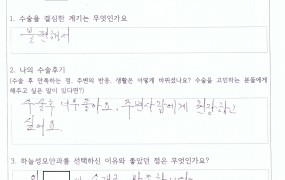 1. 수술을 결심한 계기는 무엇인가요
불편해서
2. 나의 수술후기
(수술 후 만족하는 점, 주변의 반응, 생활은 어떻게 바뀌었나요? 수술을 고민하는 분들에게
해주고 싶은 말이 있다면?)
수술후 너무좋아요, 주변사람에게 권장하고
싶어요.
3. 하늘성모안과를 선택하신 이유와 좋았던 점은 무엇인가요?